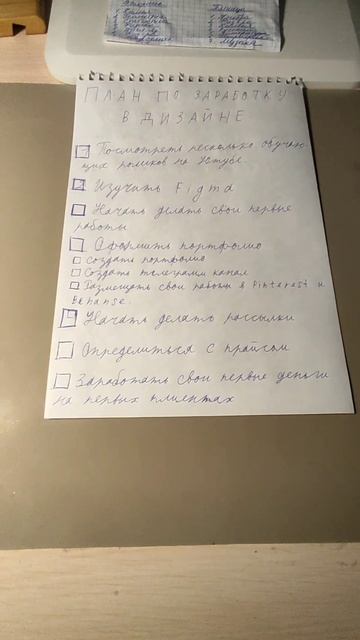 ПЛАН ПО ЗАРАБОТКУ
В ДИЗАЙНЕ
Посмотреть несколько обучаю
щих роликов на Ютубе.
Изучить Figma
Начать делать свои первые
работы
Оформить портфолио
Создать портфолио
Создать телеграмм канал
Размещать свои работы в Pinterest и
Behanse.
Начать делать рассылки
Определиться с прайсом
Заработать свои первые деньги
на первых клиентах